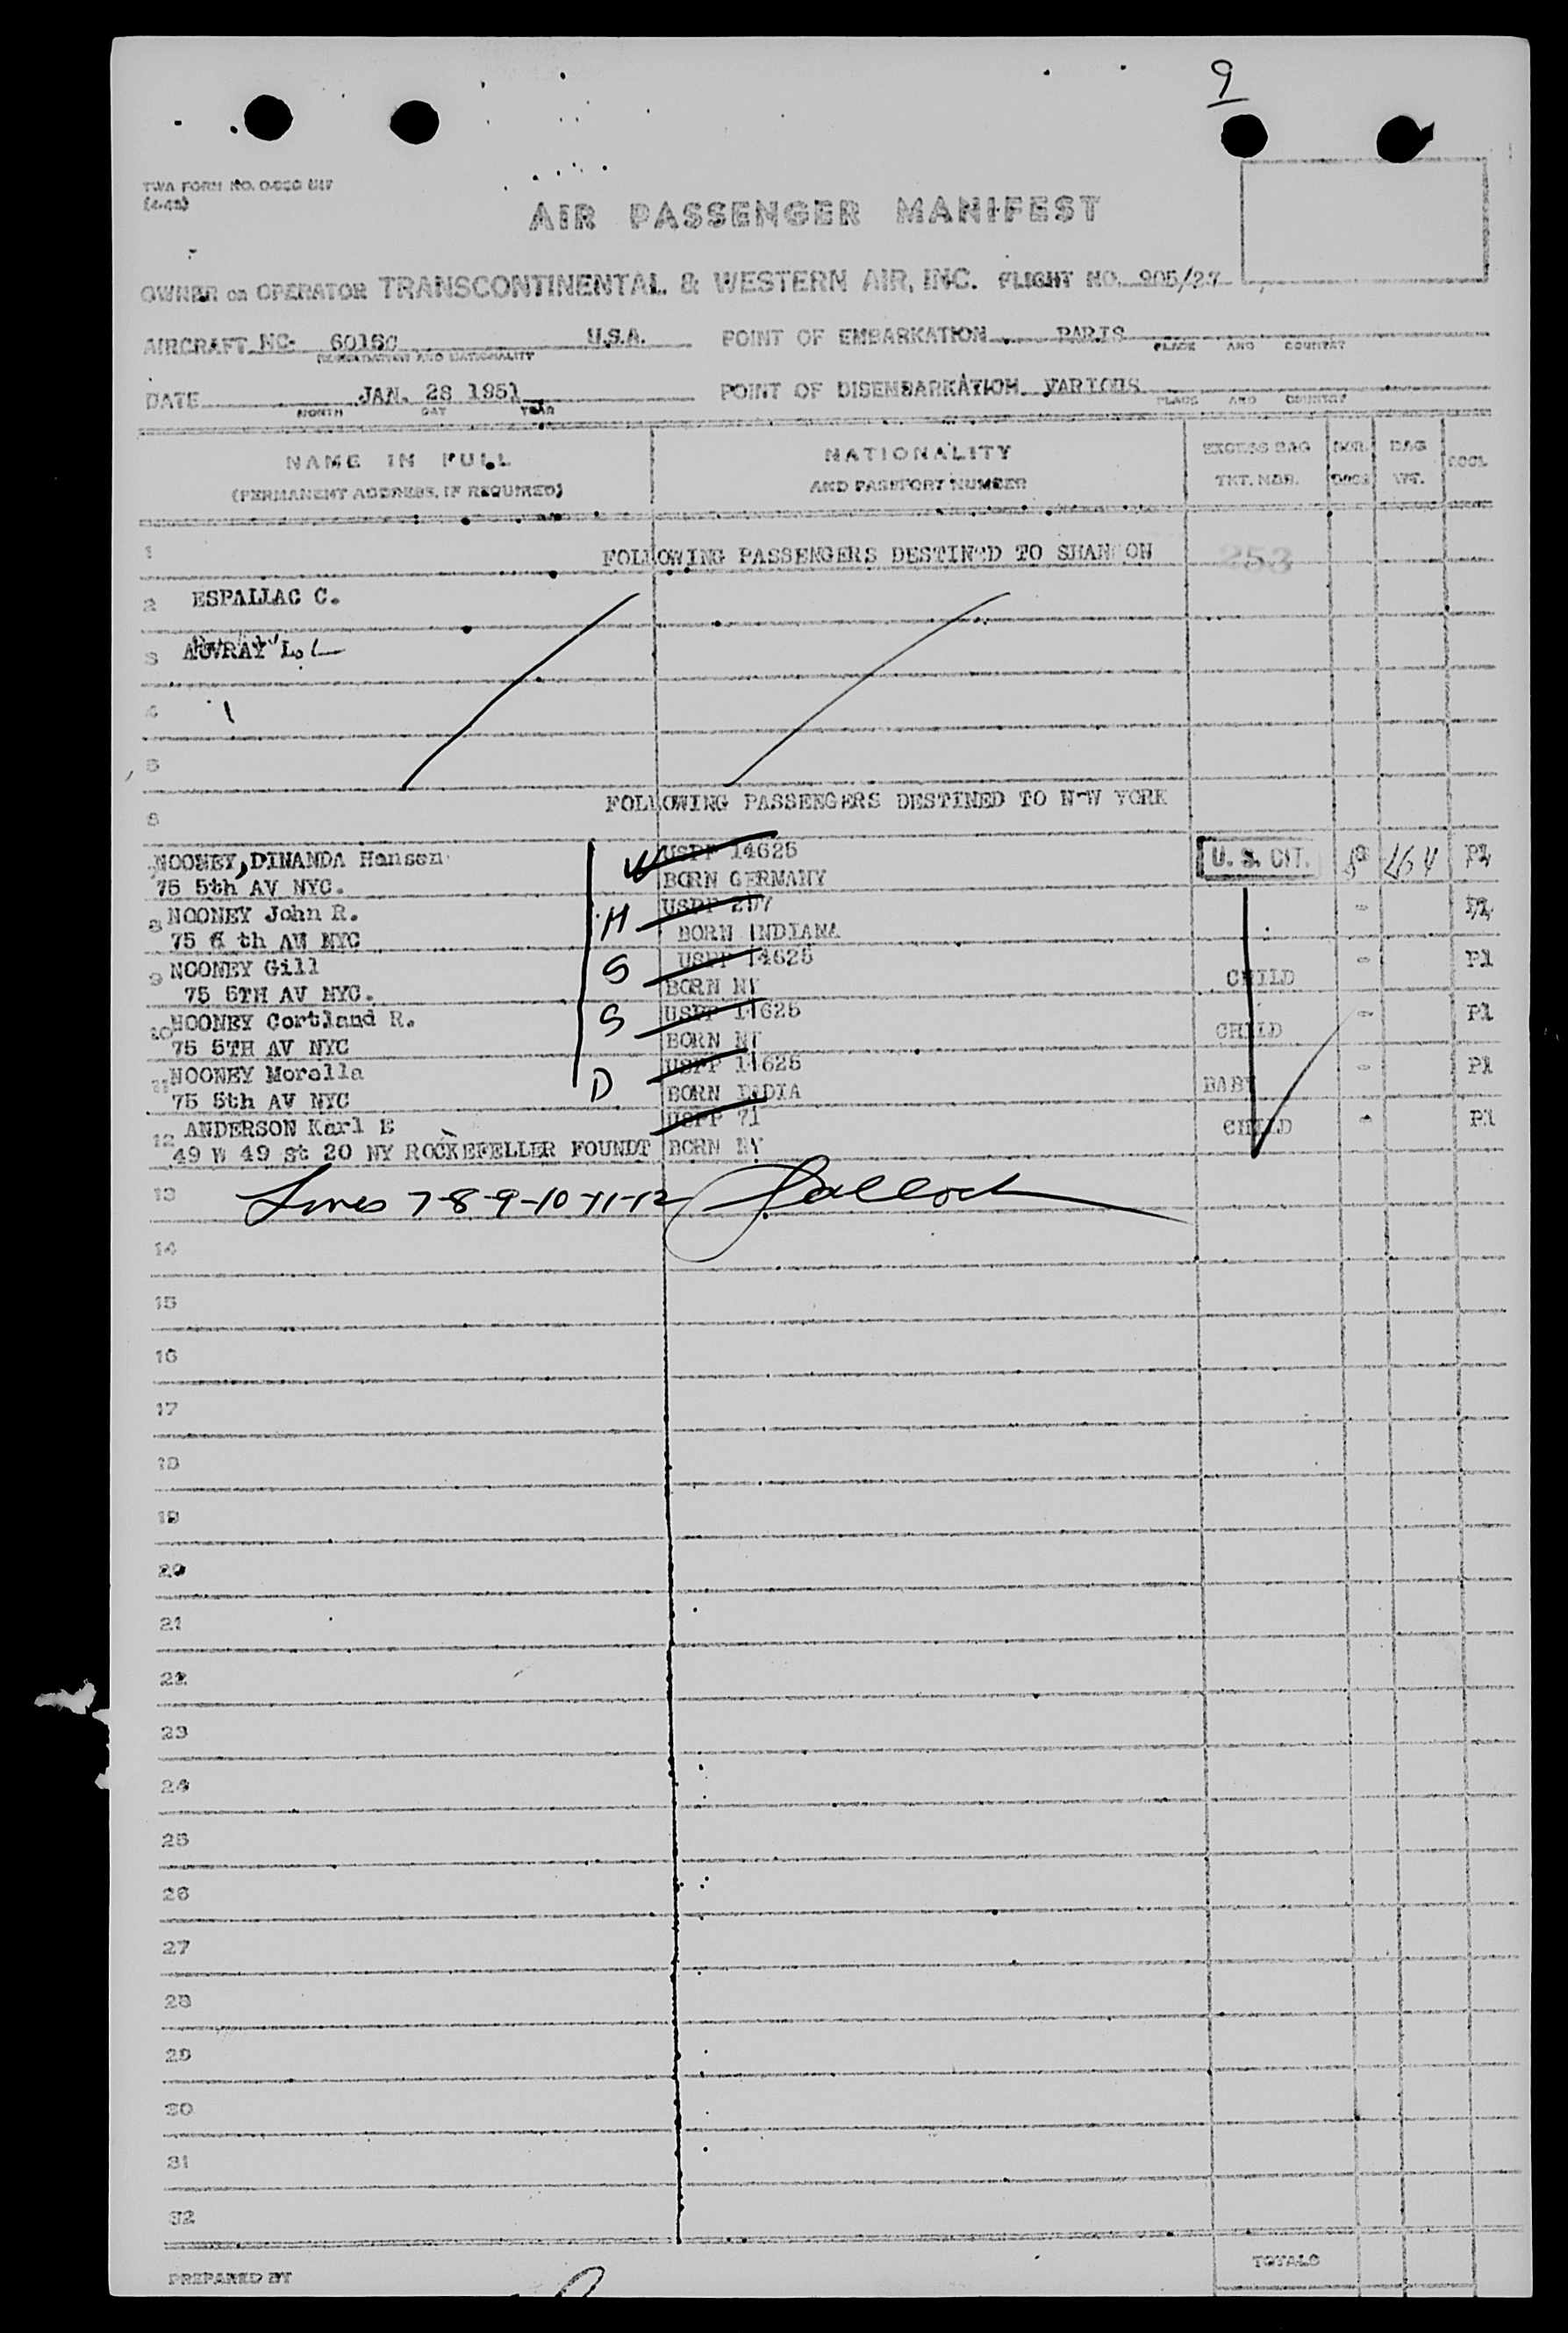 9
TWA FORM NO.
AIR PASSENGER MANIFEST
OWNER OR OPERATOR TRANSCONTINENTAL & WESTERN AIR, INC. FLIGHT NO. 905/27
AIRCRAFT NC- 6015C U.S.A. POINT OF EMBARKATION PARIS
REGISTRATION AND NATIONALITY PLACE AND COUNTRY
DATE JAN. 28 1951 POINT OF DISEMBARKATION VARIOUS
MONTH DAY YEAR PLACE AND COUNTRY
NAME IN FULL NATIONALITY EXCESS BAG BAG
(PERMANENT ADDRESS, IF REQUIRED) AND PASSPORT NUMBER TKT. NBR. WT.
1 FOLLOWING PASSENGERS DESTINED TO SHANNON 253
2 ESPALLAC C.
3 AUVRAY L.
4
5
6 FOLLOWING PASSENGERS DESTINED TO N-W YORK
7 NOONEY, DINANDA Hansen W USPP 14625 U. S. CIT. P1
75 5th AV NYC. BORN GERMANY
8 NOONEY John R. H USPP 207 -
75 6 th AV NYC BORN INDIANA
9 NOONEY Gill S USPP 14625 CHILD - P1
75 5TH AV NYC. BORN NY
10 NOONEY Cortland R. S USPP 14625 CHILD - P1
75 5TH AV NYC BORN NY
11 NOONEY Morella D USPP 14625 BABY - P1
75 5th AV NYC BORN INDIA
12 ANDERSON Karl E USPP 71 CHILD - P1
49 W 49 St 20 NY ROCKEFELLER FOUNDT BORN NY
13 Lines 7-8-9-10-11-12
14
15
16
17
18
19
20
21
22
23
24
25
26
27
28
29
30
31
32
PREPARED BY TOTALS